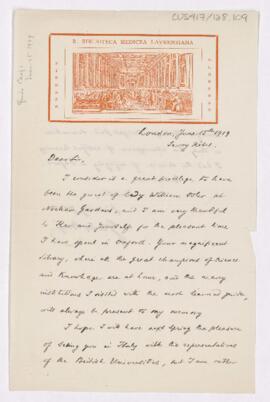 CUS417/128.109
Guido Biagi
June 15 1919
R. BIBLIOTECA MEDICEA LAURENZIANA
FIRENZE
London, June 15th 1919
Savoy Hotel.
Dear Sir,
I consider as a great privilege to have
been the guest of Lady William Osler at
Norham Gardens, and I am very thankful
to Her and yourself for the pleasant time
I have spent in Oxford. Your magnificent
library, where all the great champions of Science
and Knowledge are at home, and the many
institutions I visited with the most learned guide,
will always be present to my memory
I hope I will have next spring the pleasure
of seeing you in Italy with the representatives
of the British Universities, but I am rather